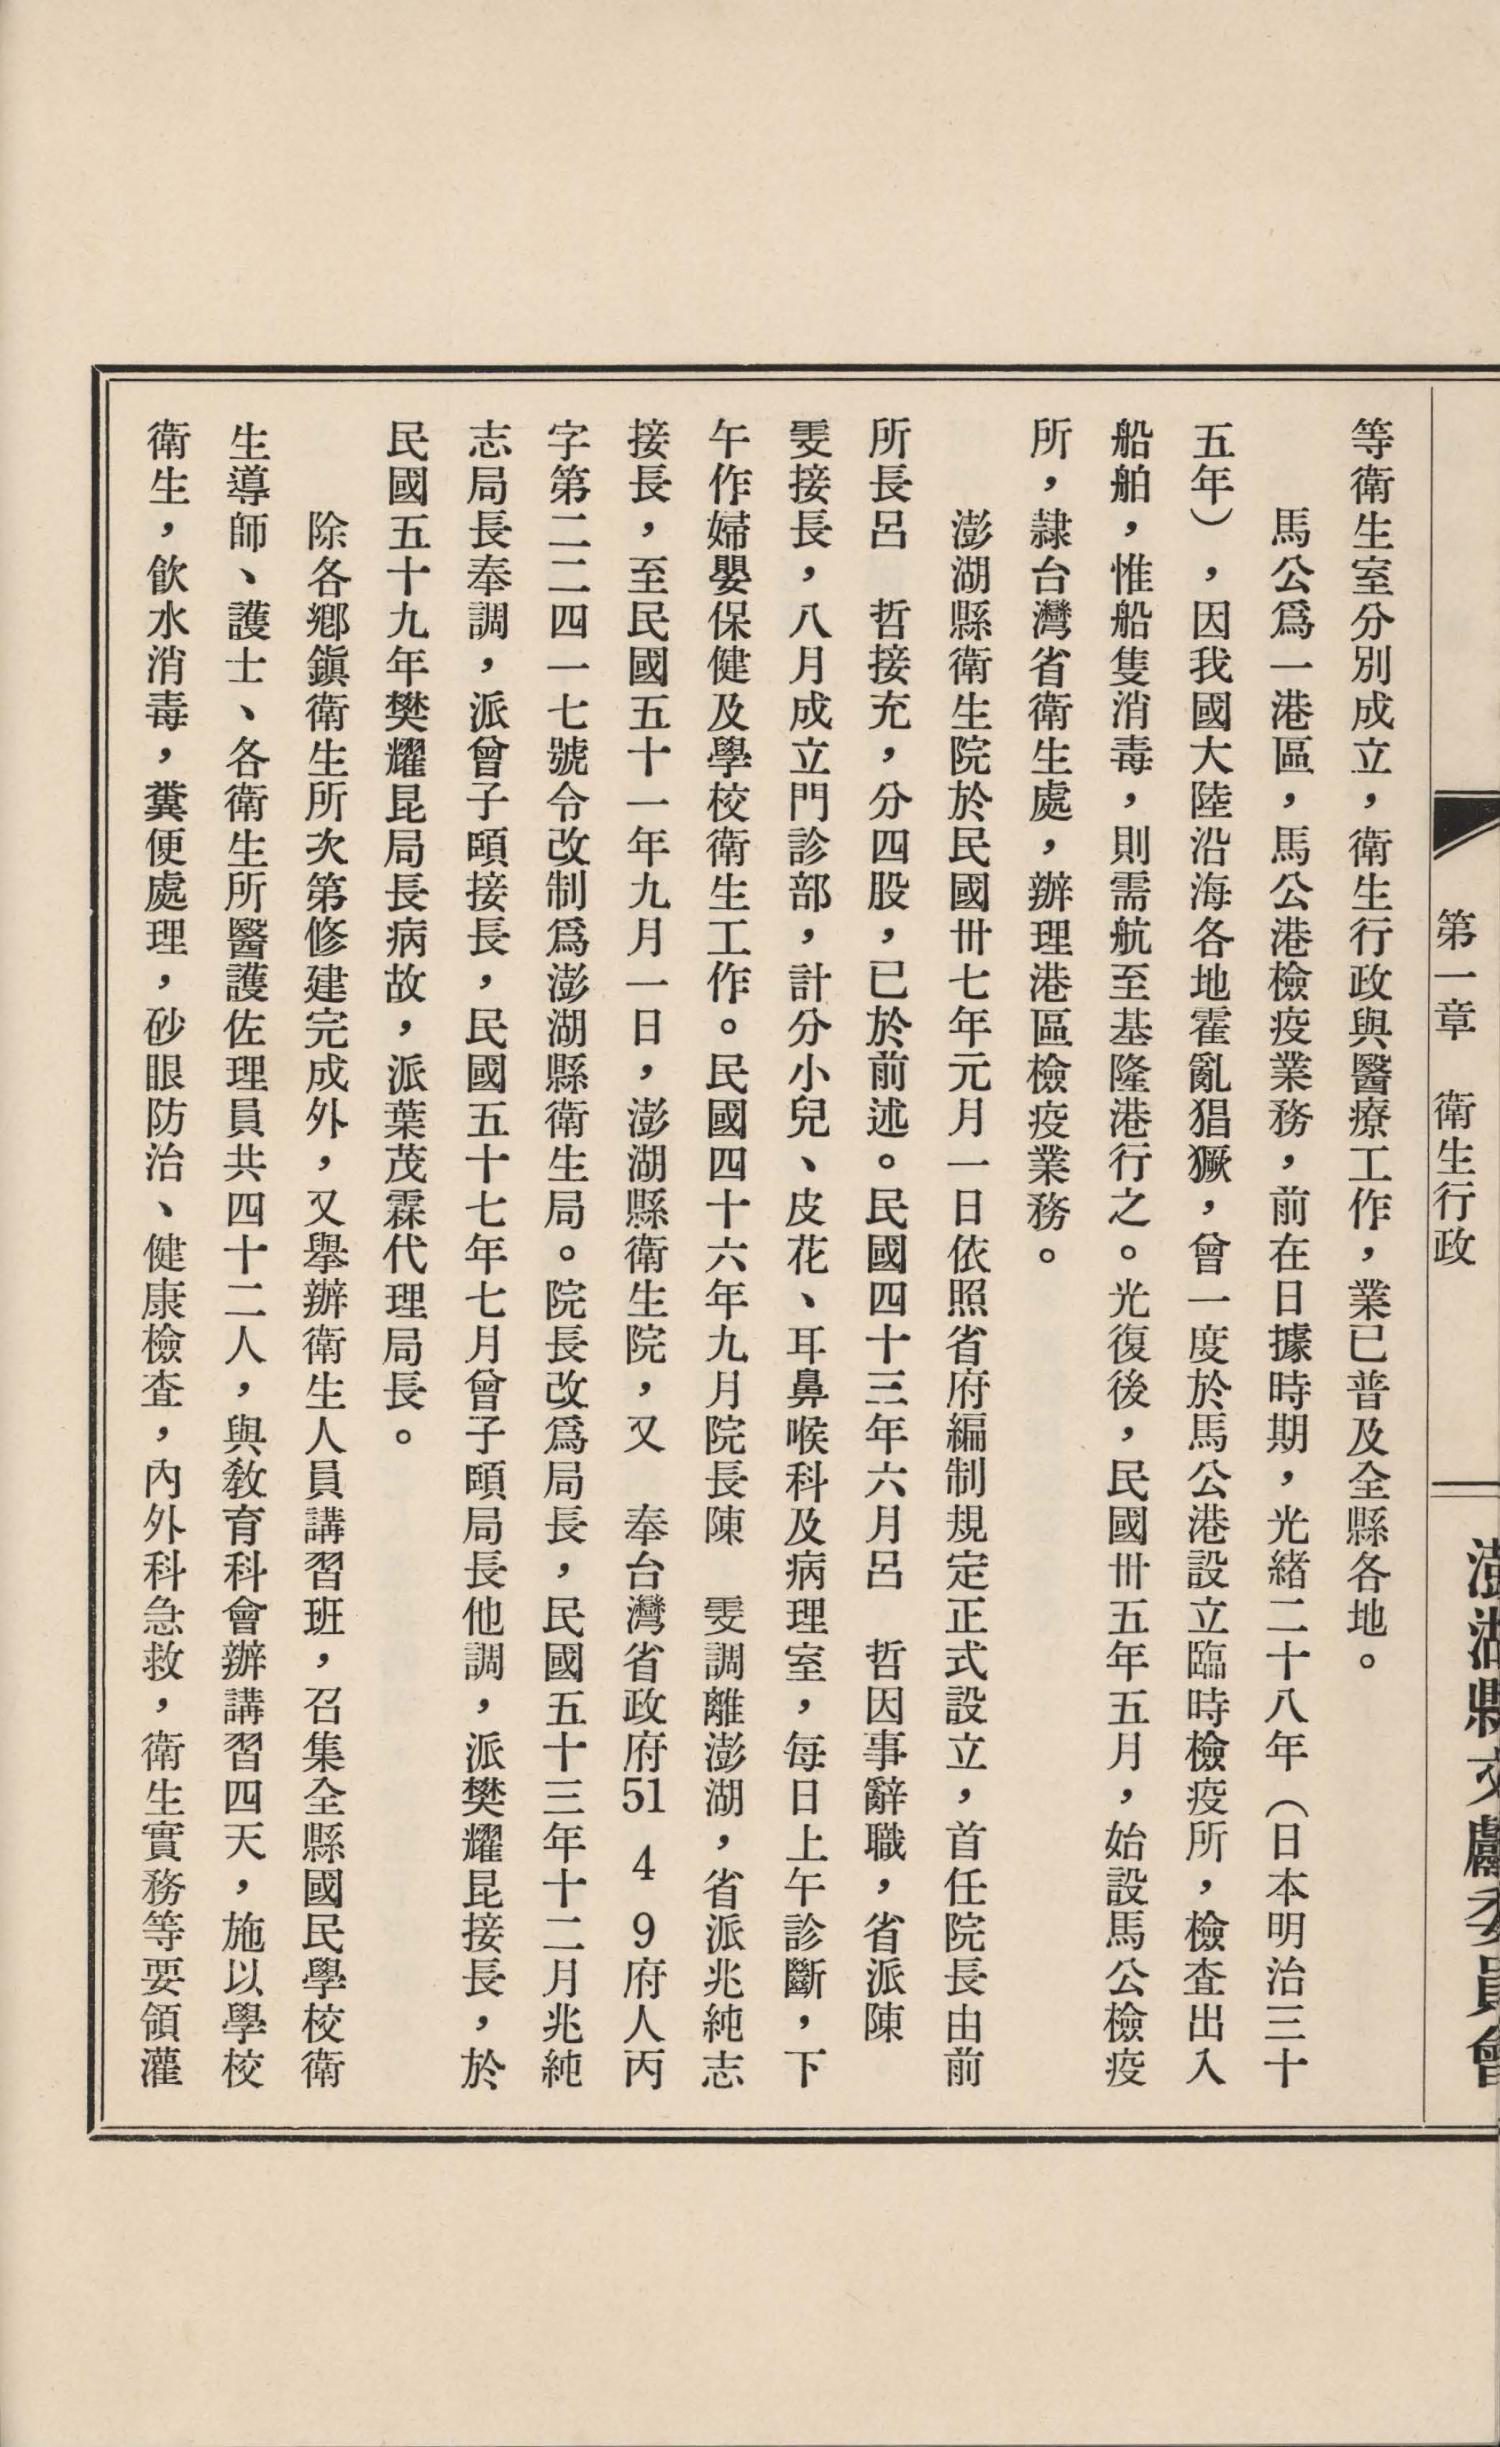 第一章　衛生行政
澎湖縣文獻委員會
等衛生室分別成立，衛生行政與醫療工作，業已普及全縣各地。
馬公爲一港區，馬公港檢疫業務，前在日據時期，光緒二十八年（日本明治三十
五年），因我國大陸沿海各地霍亂猖獗，曾一度於馬公港設立臨時檢疫所，檢查出入
船舶，惟船隻消毒，則需航至基隆港行之。光復後，民國卅五年五月，始設馬公檢疫
所，隷台灣省衛生處，辦理港區檢疫業務。
澎湖縣衛生院於民國卅七年元月一日依照省府編制規定正式設立，首任院長由前
所長呂　哲接充，分四股，已於前述。民國四十三年六月呂　哲因事辭職，省派陳
雯接長，八月成立門診部，計分小兒、皮花、耳鼻喉科及病理室，每日上午診斷，下
午作婦嬰保健及學校衛生工作。民國四十六年九月院長陳　雯調離澎湖，省派兆純志
接長，至民國五十一年九月一日，澎湖縣衛生院，又　奉台灣省政府51 4 9府人丙
字第二二四一七號令改制爲澎湖縣衛生局。院長改爲局長，民國五十三年十二月兆純
志局長奉調，派曾子頤接長，民國五十七年七月曾子頤局長他調，派樊耀昆接長，於
民國五十九年樊耀昆局長病故，派葉茂霖代理局長。
除各鄉鎭衛生所次第修建完成外，又舉辦衛生人員講習班，召集全縣國民學校衛
生導師、護士、各衛生所醫護佐理員共四十二人，與敎育科會辦講習四天，施以學校
衛生，飮水消毒，糞便處理，砂眼防治、健康檢查，內外科急救，衛生實務等要領灌